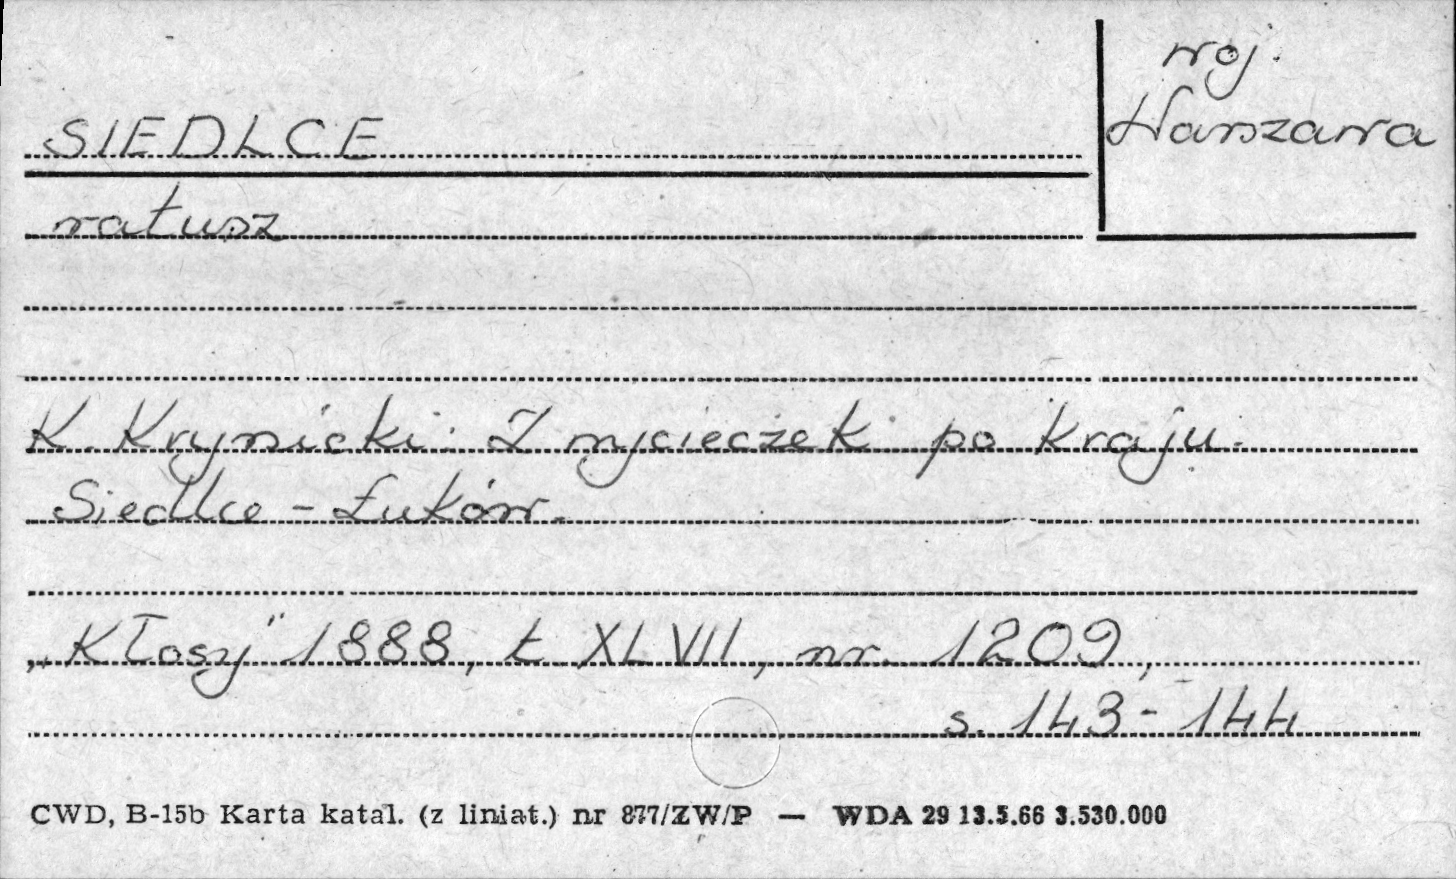 woj.
Warszawa
SIEDLCE
ratusz
K. Krynicki: Z wycieczek po kraju.
Siedlce - Łuków.
„Kłosy" 1888, t. XLVII, nr. 1209,
s. 143-144
CWD, B-15b Karta katal. (z liniat.) nr 877/ZW/P — WDA 29 13.5.66 3.530.000